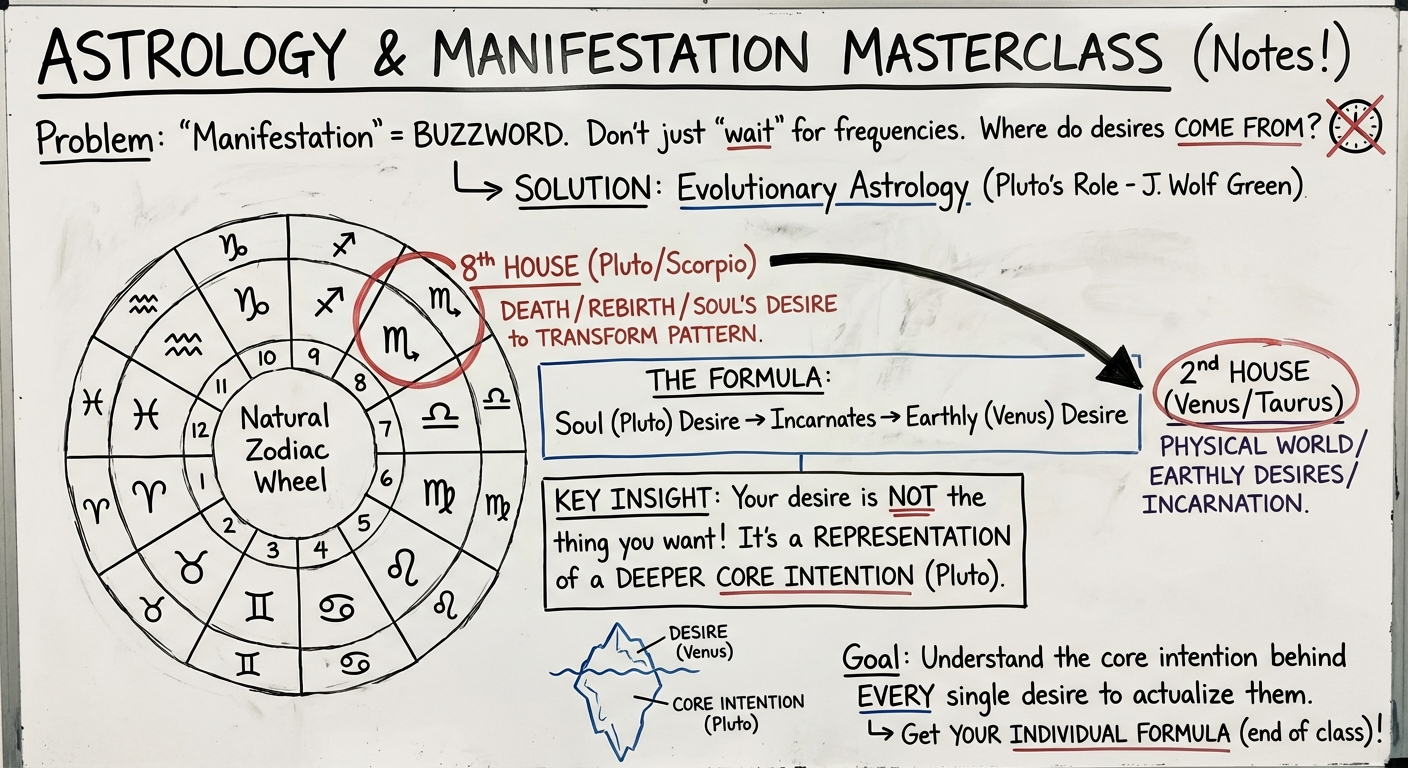 ASTROLOGY & MANIFESTATION MASTERCLASS (Notes!)
Problem: "Manifestation" = BUZZWORD. Don't just "wait" for frequencies. Where do desires COME FROM?
↳ SOLUTION: Evolutionary Astrology (Pluto's Role - J. Wolf Green)
8th HOUSE (Pluto/Scorpio)
DEATH/REBIRTH/SOUL'S DESIRE
to TRANSFORM PATTERN.
♑ ♐ ♏ ♎ ♍ ♌ ♋ ♊ ♉ ♈ ♓ ♒
♑ ♐ ♏ ♎ ♍ ♌ ♋ ♊ ♉ ♈ ♓ ♒
10 9 8 7 6 5 4 3 2 1 12 11
Natural
Zodiac
Wheel
THE FORMULA:
Soul (Pluto) Desire → Incarnates → Earthly (Venus) Desire
2nd HOUSE
(Venus/Taurus)
PHYSICAL WORLD/
EARTHLY DESIRES/
INCARNATION.
KEY INSIGHT: Your desire is NOT the
thing you want! It's a REPRESENTATION
of a DEEPER CORE INTENTION (Pluto).
DESIRE
(Venus)
CORE INTENTION
(Pluto)
Goal: Understand the core intention behind
EVERY single desire to actualize them.
↳ Get YOUR INDIVIDUAL FORMULA (end of class)!